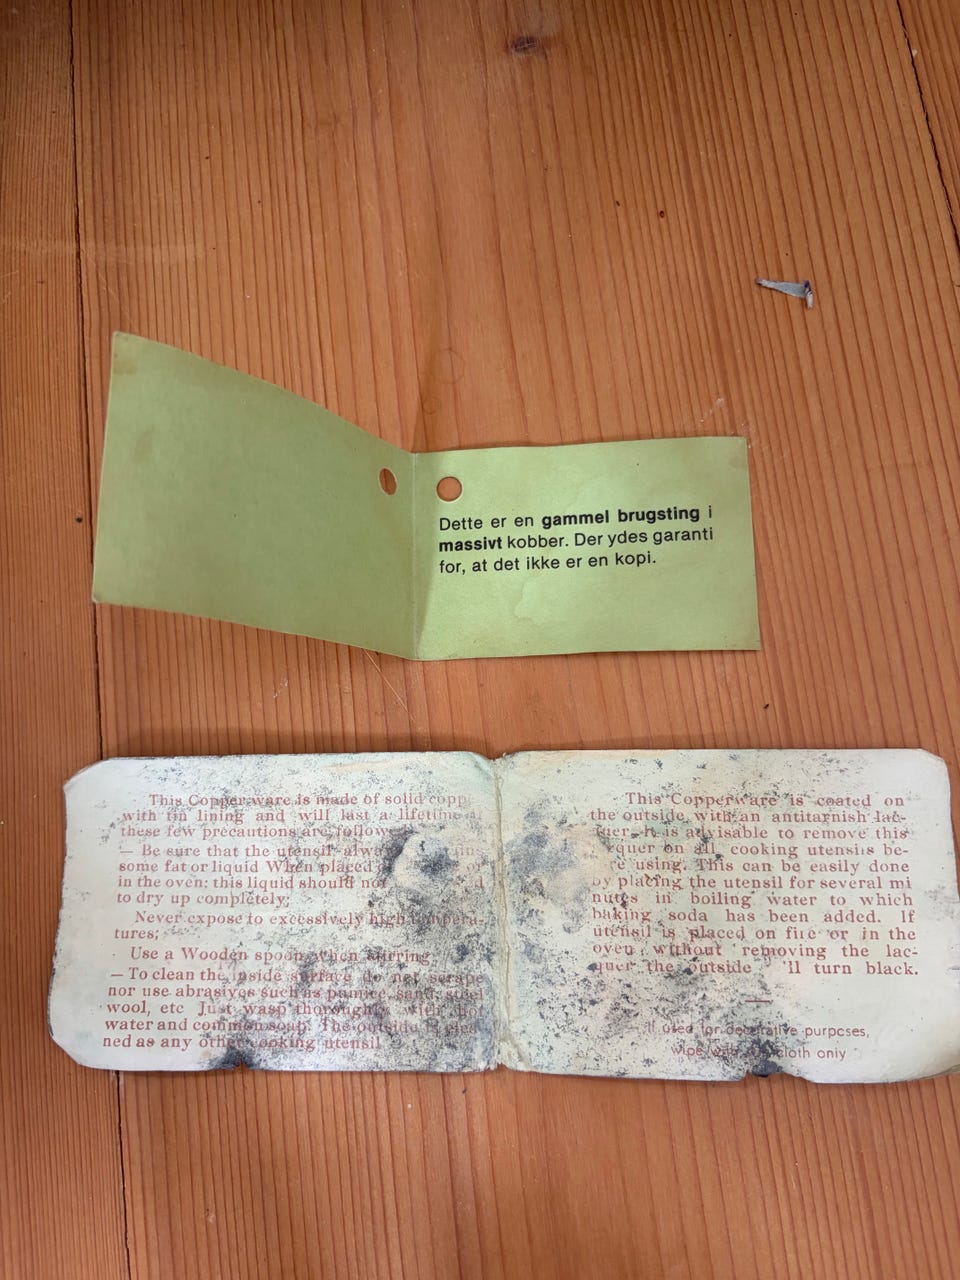 Dette er en gammel brugsting i
massivt kobber. Der ydes garanti
for, at det ikke er en kopi.
This Copperware is made of solid
with tin lining and will last a lifetime
these few precautions are
— Be sure that the utensil
some fat or liquid When placed
in the oven: this liquid should not
to dry up completely;
Never expose to excessively high
tures;
Use a Wooden spoon when stirring;
— To clean the inside surface do not scrape
nor use abrasives such as pumice, sand, steel
wool, etc Just wasp thoroughly with hot
water and common soap The outside is
ned as any other cooking utensil
This Copperware is coated on
the outside with an antitarnish lac-
It is advisable to remove this
on all cooking utensils be-
using. This can be easily done
by placing the utensil for several mi
nutes in boiling water to which
baking soda has been added. If
utensil is placed on fire or in the
oven without removing the lac-
quer the outside turn black.
If used for decorative purposes,
wipe with cloth only